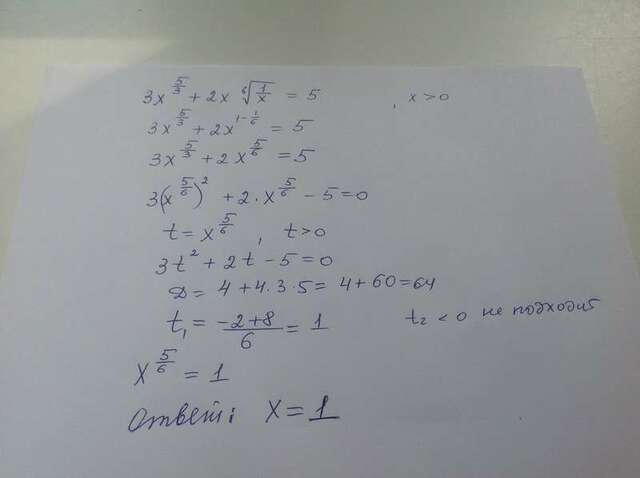 3x^(5/3) + 2x ⁶√(1/x) = 5 , x > 0
3x^(5/3) + 2x^(1 - 1/6) = 5
3x^(5/3) + 2x^(5/6) = 5
3(x^(5/6))² + 2 · x^(5/6) - 5 = 0
t = x^(5/6) , t > 0
3t² + 2t - 5 = 0
Д = 4 + 4 · 3 · 5 = 4 + 60 = 64
t₁ = (-2 + 8)/6 = 1 t₂ < 0 не подходит
x^(5/6) = 1
Ответ: x = 1